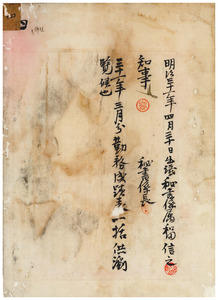 明治三十一年四月三十日生徒秘書係属稲信之
知事
秘書係長
三十一年三月分勤務成蹟表一括供瀏
覧候也